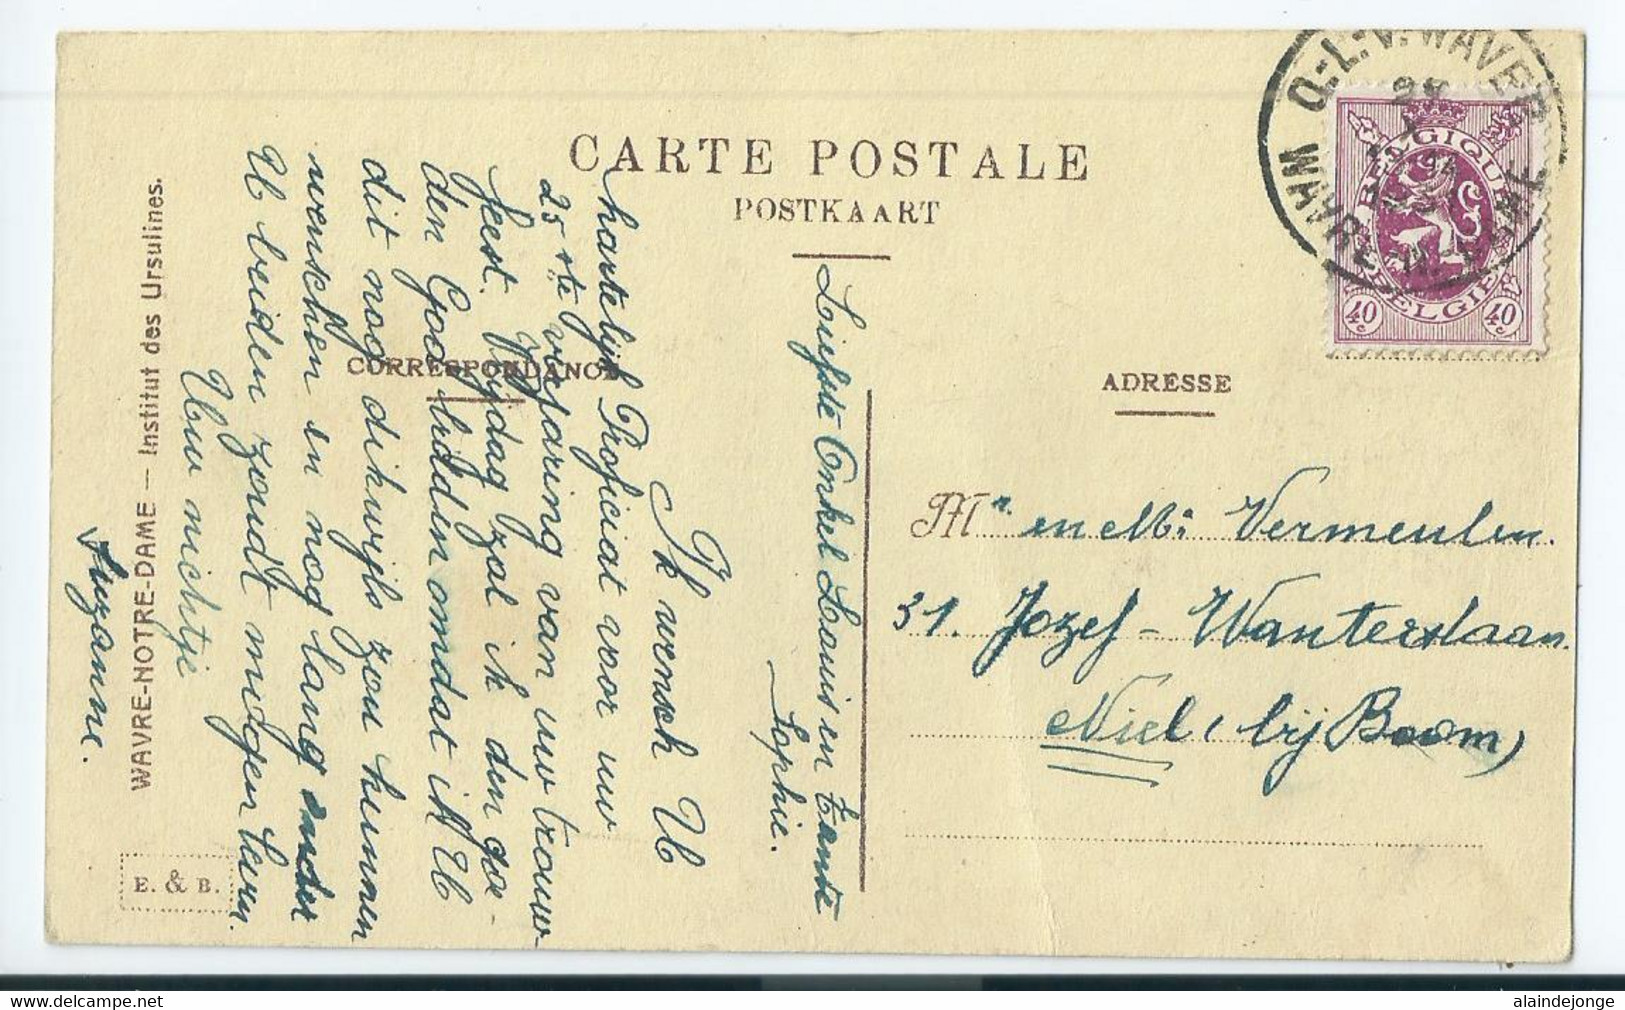 CARTE POSTALE
POSTKAART
CORRESPONDANCE
ADRESSE
WAVRE-NOTRE-DAME — Institut des Ursulines.
E. & B.
Liefste Onkel Louis en Tante
Sophie.
Ik wensch U
hartelijk Proficiat voor uw
25 ste verjaring van uw trouw-
feest. Vrijdag zal ik den goe-
den God bidden omdat ik U
dit nog dikwijls zou kunnen
wenschen en nog lang onder
U beiden zoudt mogen leven.
Uw nichtje
Suzanne.
Mr. en M. Vermeulen.
31. Jozef-Wauterslaan.
Niel (bij Boom)
O.-L.-V. WAVER
WAVRE-N.-DAME
BELGIQUE
BELGIE
40 c
40 c
alaindejonge